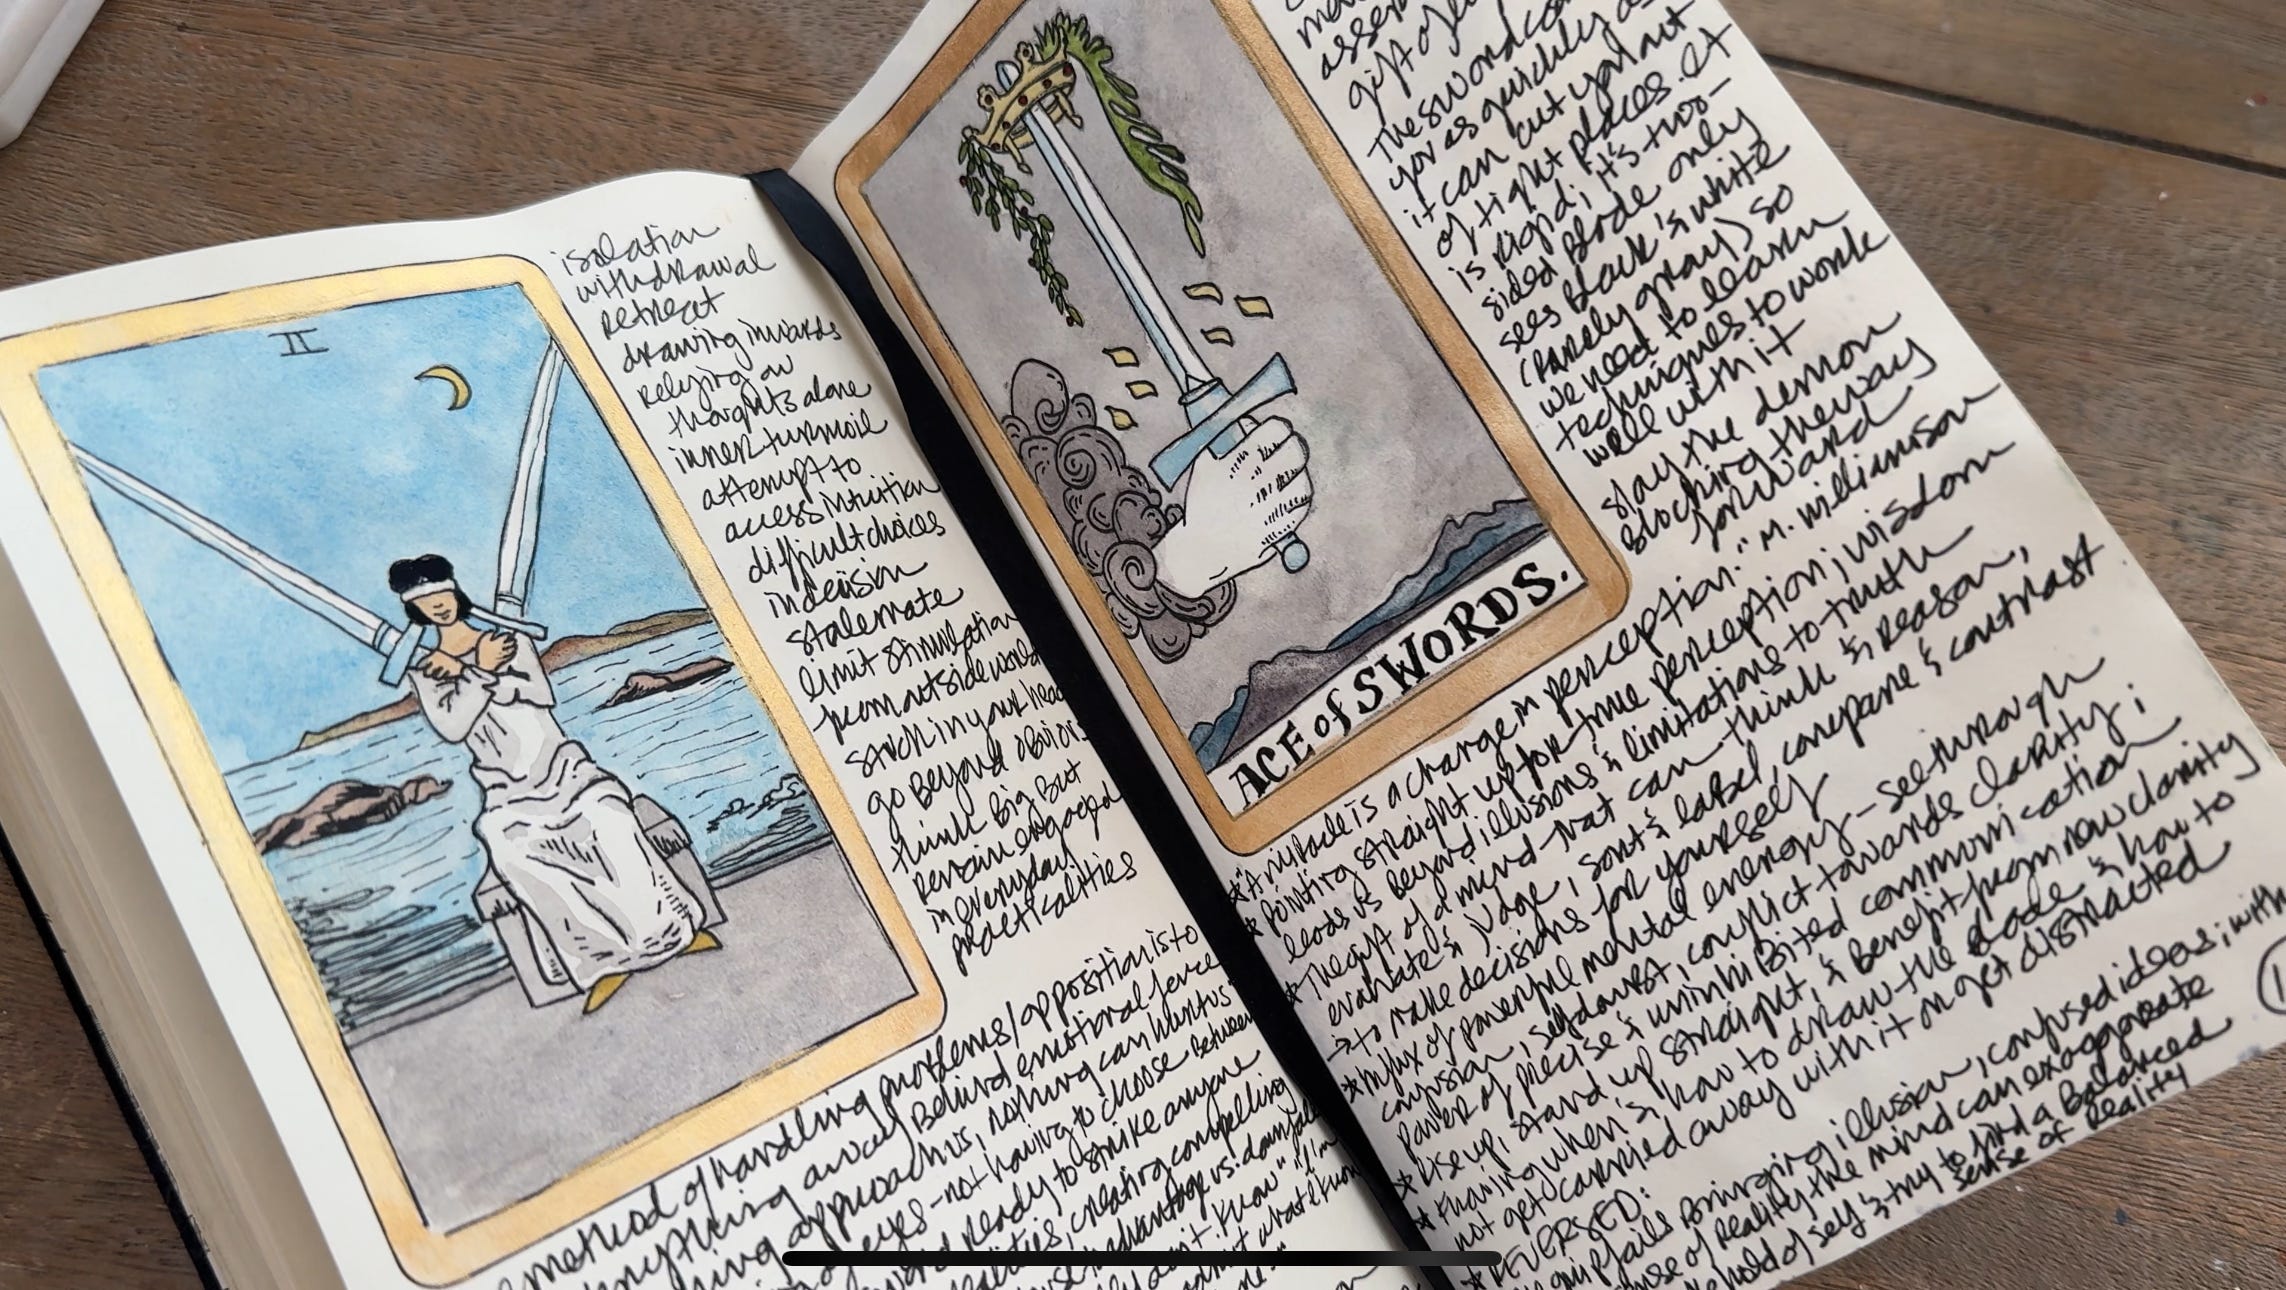 II
isolation
withdrawal
retreat
drawing inwards
relying on
thoughts alone
inner turmoil
attempt to
access intuition
difficult choices
indecision
stalemate
limit stimulation
from outside world
stuck in your head
go beyond obvious
think big but
remain engaged
in everyday
practicalities
method of handling problems/opposition is to
away behind emotional fence
approach us, nothing can hurt us
eyes - not having to choose between
ready to strike anyone
creating compelling
advantage us: downfall
don't know" "I'm
gift of
The sword can
you as quickly as
it can cut you out
of tight places. It
is rigid; it's two-
sided blade only
sees black & white
(rarely gray) so
we need to learn
techniques to work
well with it
slay the demon
blocking the way
forward
ACE of SWORDS.
* "A miracle is a change in perception." M. Williamson
* pointing straight up for true perception; wisdom
leads us beyond illusions & limitations to truth
* The gift of a mind that can think & reason,
evaluate & judge, sort & label, compare & contrast
→ to make decisions for yourself
* influx of powerful mental energy - see through
confusion, self doubt, conflict towards clarity;
power of precise & uninhibited communication
* rise up, stand up straight, & benefit from new clarity
* Knowing when & how to draw the blade & how to
not get carried away with it or get distracted
* REVERSED:
grip fails bringing illusion, confused ideas; with
sense of reality the mind can exaggerate
hold of self & try to find a balanced
sense of reality